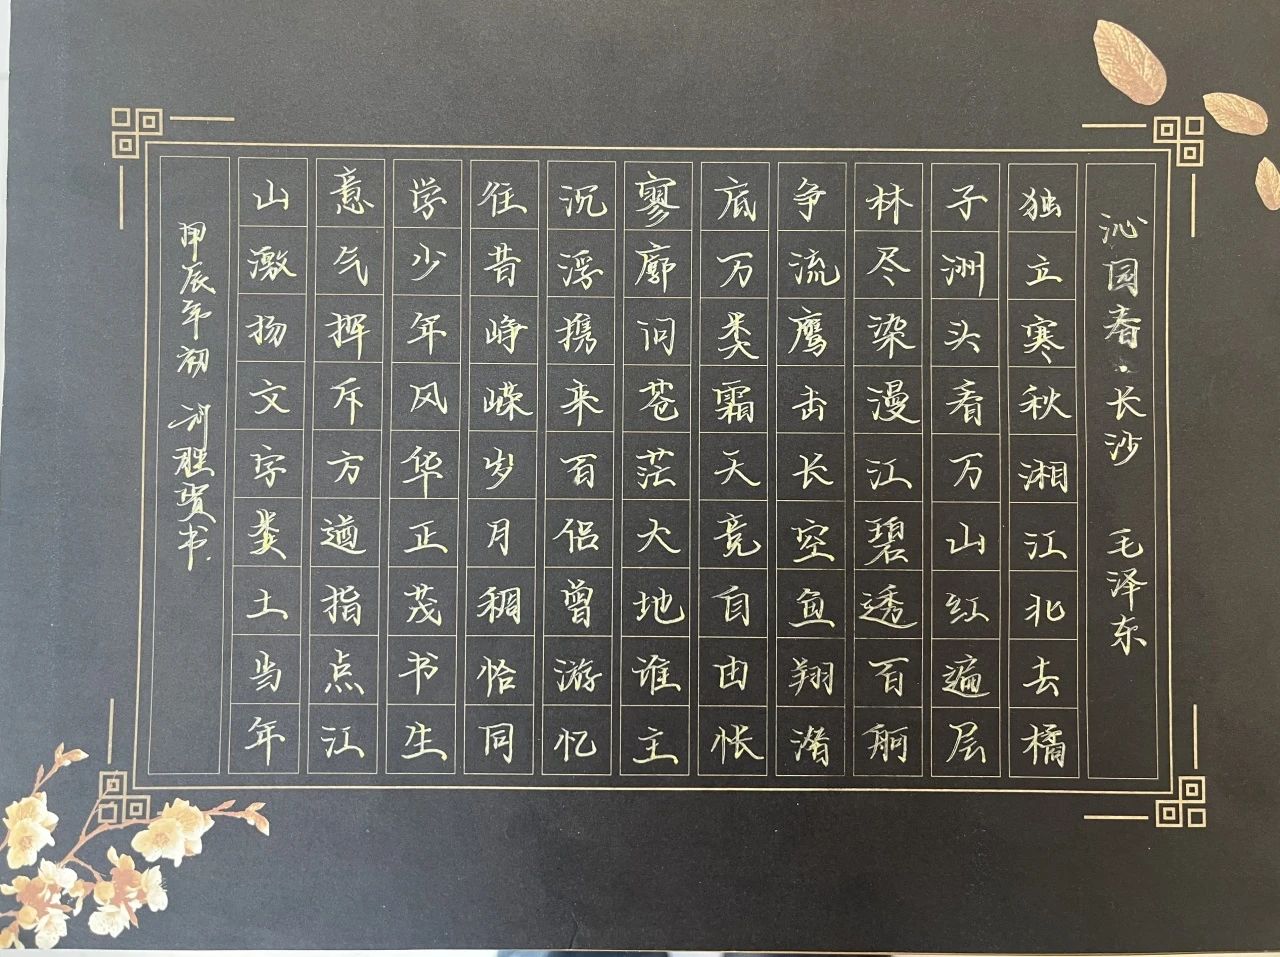 沁园春·长沙 毛泽东
独立寒秋湘江北去橘
子洲头看万山红遍层
林尽染漫江碧透百舸
争流鹰击长空鱼翔潜
底万类霜天竞自由怅
寥廓问苍茫大地谁主
沉浮携来百侣曾游忆
往昔峥嵘岁月稠恰同
学少年风华正茂书生
意气挥斥方遒指点江
山激扬文字粪土当年
甲辰年初 贺书